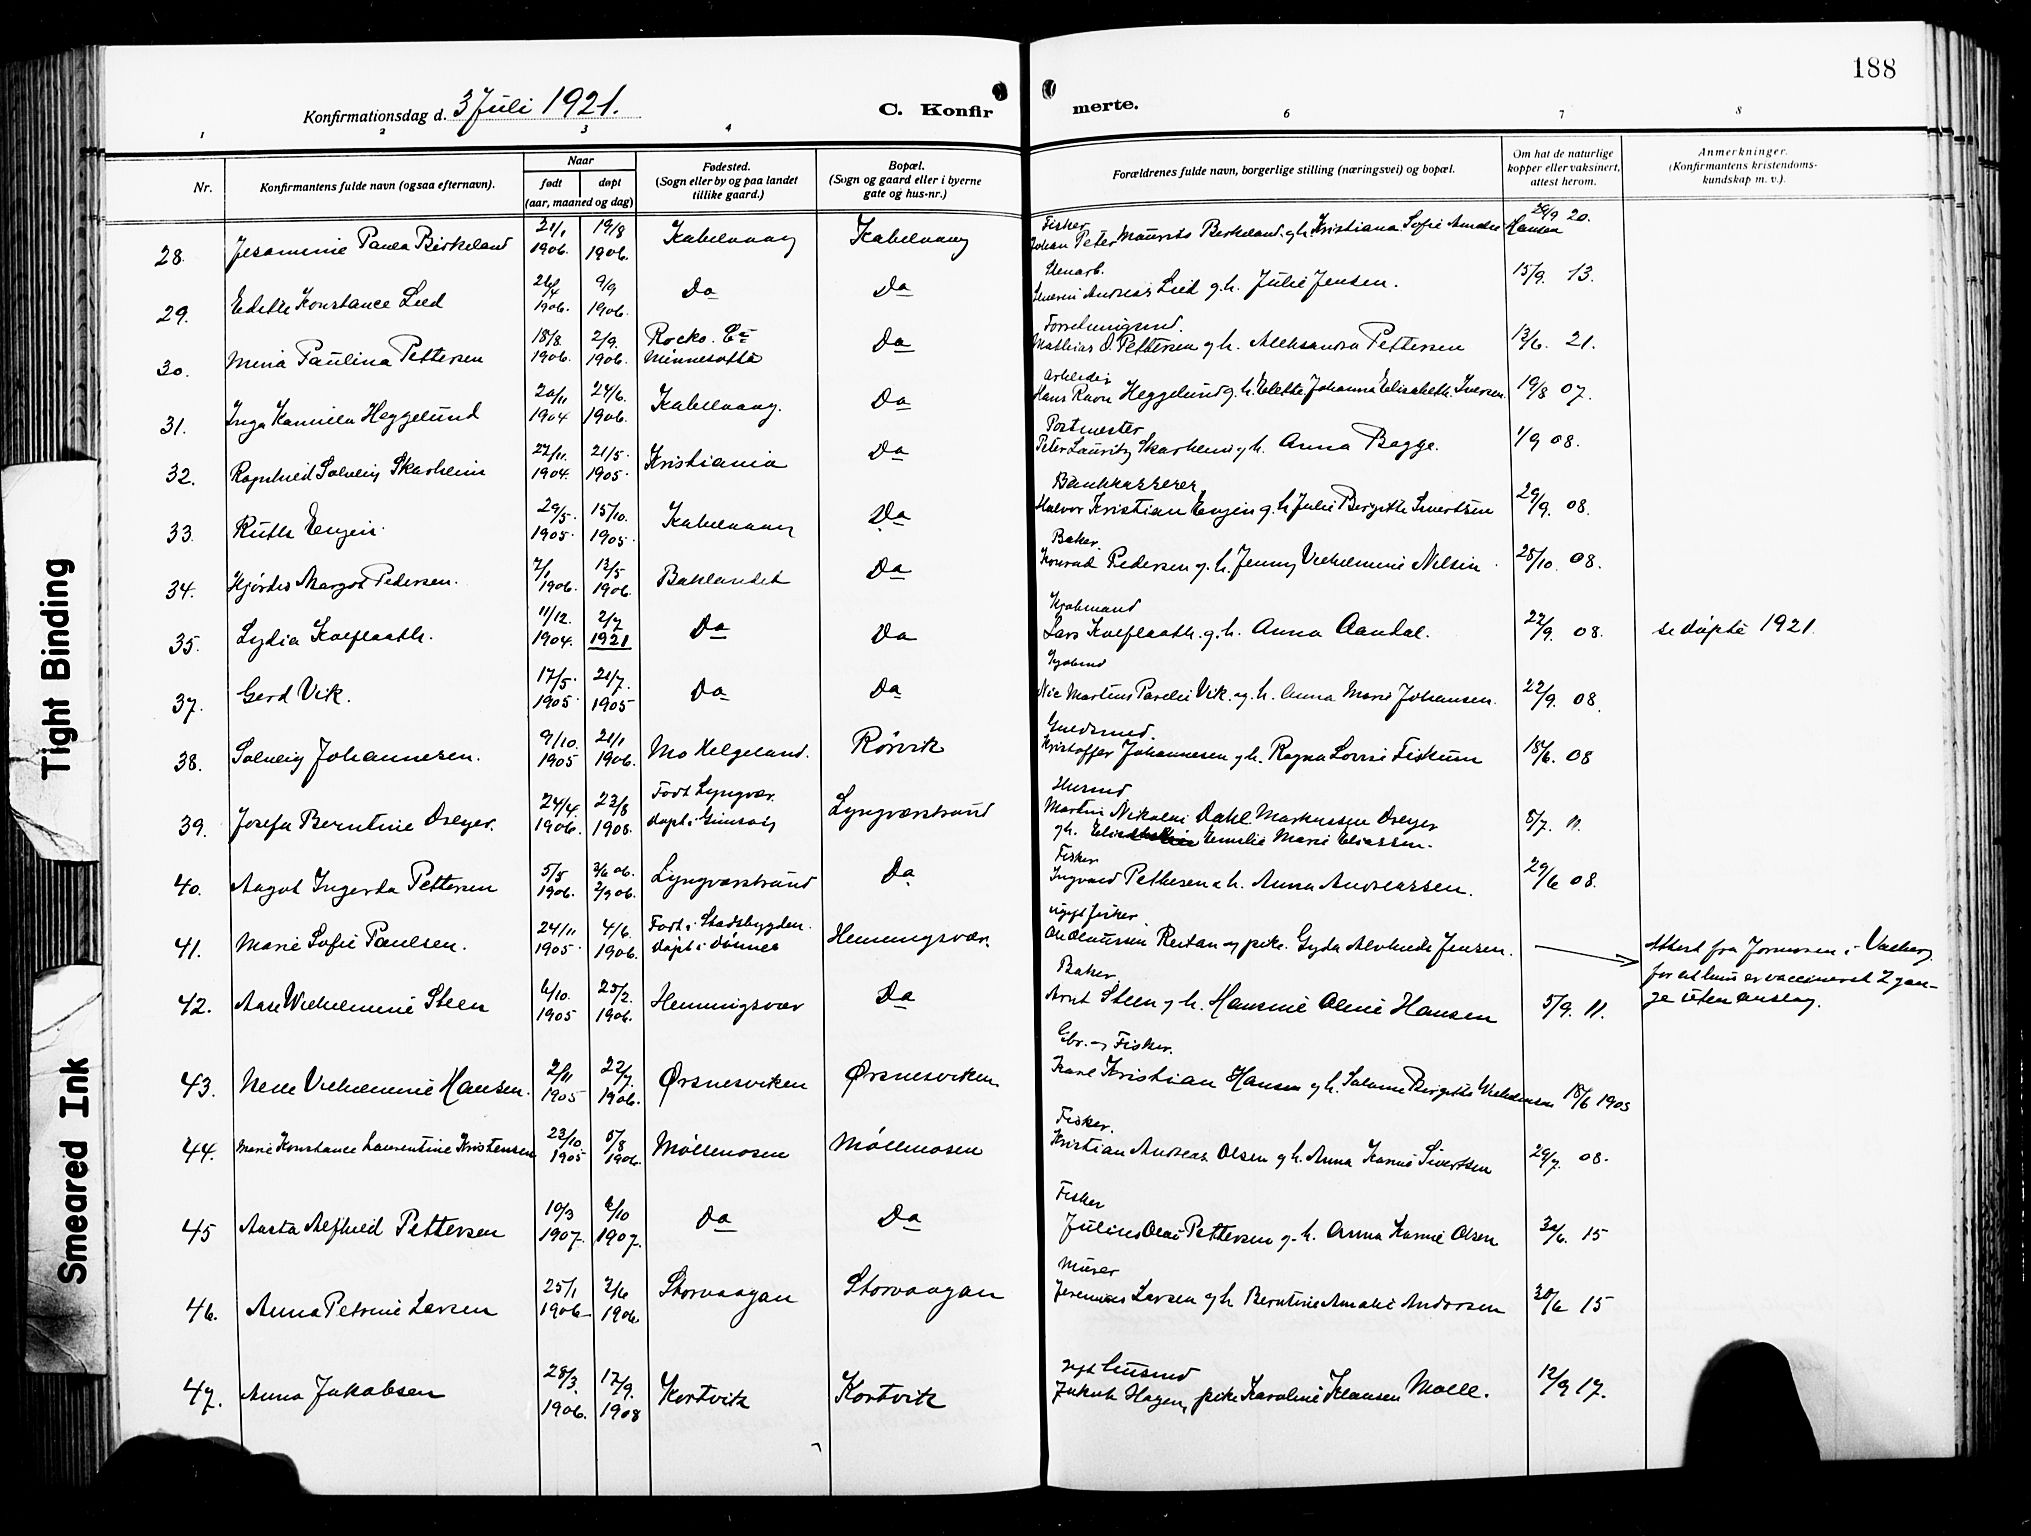 188
Konfirmationsdag d. 3 Juli 1921.
C. Konfirmerte.
1 2 3 4 6 7 8
Nr.
Konfirmantens fulde navn (ogsaa efternavn).
Naar
født døpt
(aar, maaned og dag)
Fødested.
(Sogn eller by og paa landet
tillike gaard.)
Bopæl.
(Sogn og gaard eller i byerne
gate og hus-nr.)
Forældrenes fulde navn, borgerlige stilling (næringsvei) og bopæl.
Om hat de naturlige
kopper eller vaksinert,
attest herom.
Anmerkninger.
(Konfirmantens kristendoms-
kundskap m. v.).
Fisker
28. Jesamine Paula Birkeland 21/1 1906. 19/8 1906. Kabelvaag Kabelvaag Johan Peter Maurits Berkeland g.h. Kristiana Sofie Amalie Hansen 20.
Stenarb.
29. Edith Konstance Lied 1906. 9/9 1906. Do Do Andreas Lied g.h. Julie Jensen. 15/9. 13.
30. Mina Paulina Pettersen 18/8 1906. 2/9. 1906. Minnesotta Do Mathias O. Pettersen g.h. Aleksandra Pettersen 13/6. 21.
Arbeider
31. Inga Kamilla Heggelund 20/11 1904 24/6. 1906. Kabelvaag. Do Hans Ravn Heggelund g.h. Elette Johanna Elisabeth Iversen 19/8 07.
Postmester
32. Ragnhild Solveig Skarheim 22/11. 1904. 21/5. 1905. Kristiania Do Peter Lauritz Skarheim g.h. Anna Bagge. 1/9 08.
Bankkasserer
33. Ruth Engen. 29/5. 1905. 15/10. 1905. Kabelvaag Do Halvor Kristian Engen g.h. Julie Bergitte Sivertsen 29/9. 08.
Baker.
34. Hjørdis Margot Pedersen. 1906. 13/5 1906. Baklandet Do Konrad Pedersen g.h. Jenny Vilhelmine Nilsen. 25/10. 08.
Kjøbmand
35. Lydia Kolflaath. 11/12. 1904. 2/7 1921 Do Do Lars Kolflaath. g.h. Anna Aandal. 22/9. 08. se døpte 1921.
37. Gerd Vik. 17/5. 1905. 21/7. 1905 Do Do Martins Vik. g.h. Anna Marie Johansen. 22/9. 08.
Guldsmed.
38. Solveig Johannesen. 9/10. 1905 21/1 1906. Mo Helgeland. Rørvik Kristoffer Johannesen g.h. Ragna Lovise Fiskum 18/6. 08
Husmd
39. Josefa Berntine Dreyer. 24/4. 1906. 23/8 1908. Født Lyngvær. døpt i Gimsøy Lyngværstrand Martin Nikolai Dahl Markussen Dreyer
g.h. Emilie Marie Eliassen. 8/7. 11.
Fisker
40. Aagot Ingerda Pettersen 5/5 1906. 3/6 06. 2/9 06. Lyngværstrand Do Ingvald Pettersen g.h. Anna Andreassen. 29/6 08.
ugift fisker
41. Marie Sofie Paulsen. 24/11 1905. 4/6. 1906. Født i Stadsbygden. døpt i Dønnes Henningsvær. Reitan og pike. Gyda Alvhilde Jensen.
Attest fra Jormoren i
for at hun er vaccineret 2 gan-
ge uten anslag.
Baker
42. Aase Vilhelmine Steen 6/10. 1905 25/2. 1906. Henningsvær Do Arnt Steen g.h. Hansine Oline Hansen 5/9. 11.
Gbr. og Fisker.
43. Vilhelmine Hansen. 2/11 1905 22/7. 1906. Ørsnesviken Ørsnesviken Karl Kristian Hansen g.h. Salome Bergitte Vilhelmsen 18/6 1908
Fisker.
44. Marie Konstance Laurentine Kristensen 23/10. 1905 5/8 1906. Møllnosen Møllnosen Kristian Andreas Olsen g.h. Anna Karine Sivertsen 29/7. 08.
Fisker
45 Aasta Alfhild Pettersen 10/3 1907. 6/10 1907. Do Do Julius Olai Pettersen g.h. Anna Karine Olsen 30/6. 15
Murer
46. Anna Petrine Larsen 25/1 1906. 3/6 1906. Storvaagan Storvaagan Larsen g.h. Berntine Amalie Andorsen 30/6 15
Husmd
47. Anna Jakobsen 28/3. 1906. 17/9. 1908 Kortvik Kortvik Jakob Hagen, pike Karoline Klausen Molle. 12/9 17.
Tight Binding
Smeared Ink